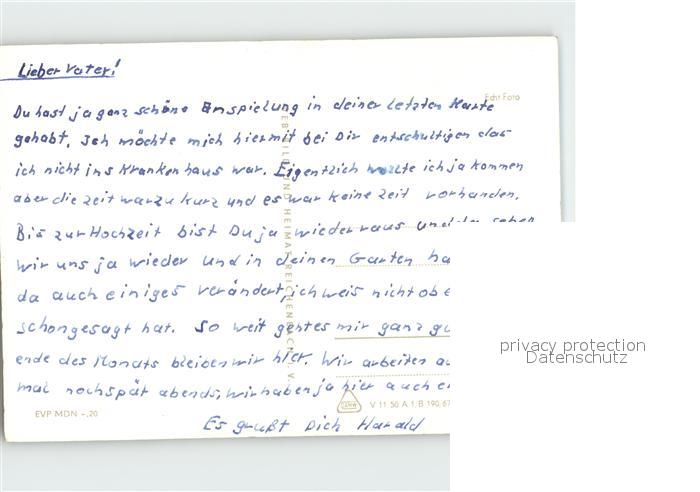 Lieber Vater!
Echt Foto
Du hast ja ganz schöne Anspielung in deiner letzten Karte
gehabt. Ich möchte mich hiermit bei Dir entschultigen das
ich nicht ins Krankenhaus war. Eigentlich wollte ich ja kommen
aber die Zeit war zu kurz und es war keine Zeit vorhanden.
Bis zur Hochzeit bist Du ja wieder raus und da sehen
wir uns ja wieder und in deinen Garten ha
da auch einiges verändert, ich weis nicht ob e
schon gesagt hat. So weit gehtes mir ganz gu
ende des Monats bleiben wir hier. Wir arbeiten au
mal noch spät abends, wir haben ja hier auch ei
Es grüßt Dich Harald
EVP MDN -,20
V 11 50 A 1/B 190/67
BILD UND HEIMAT REICHENBACH I. V.
privacy protection
Datenschutz